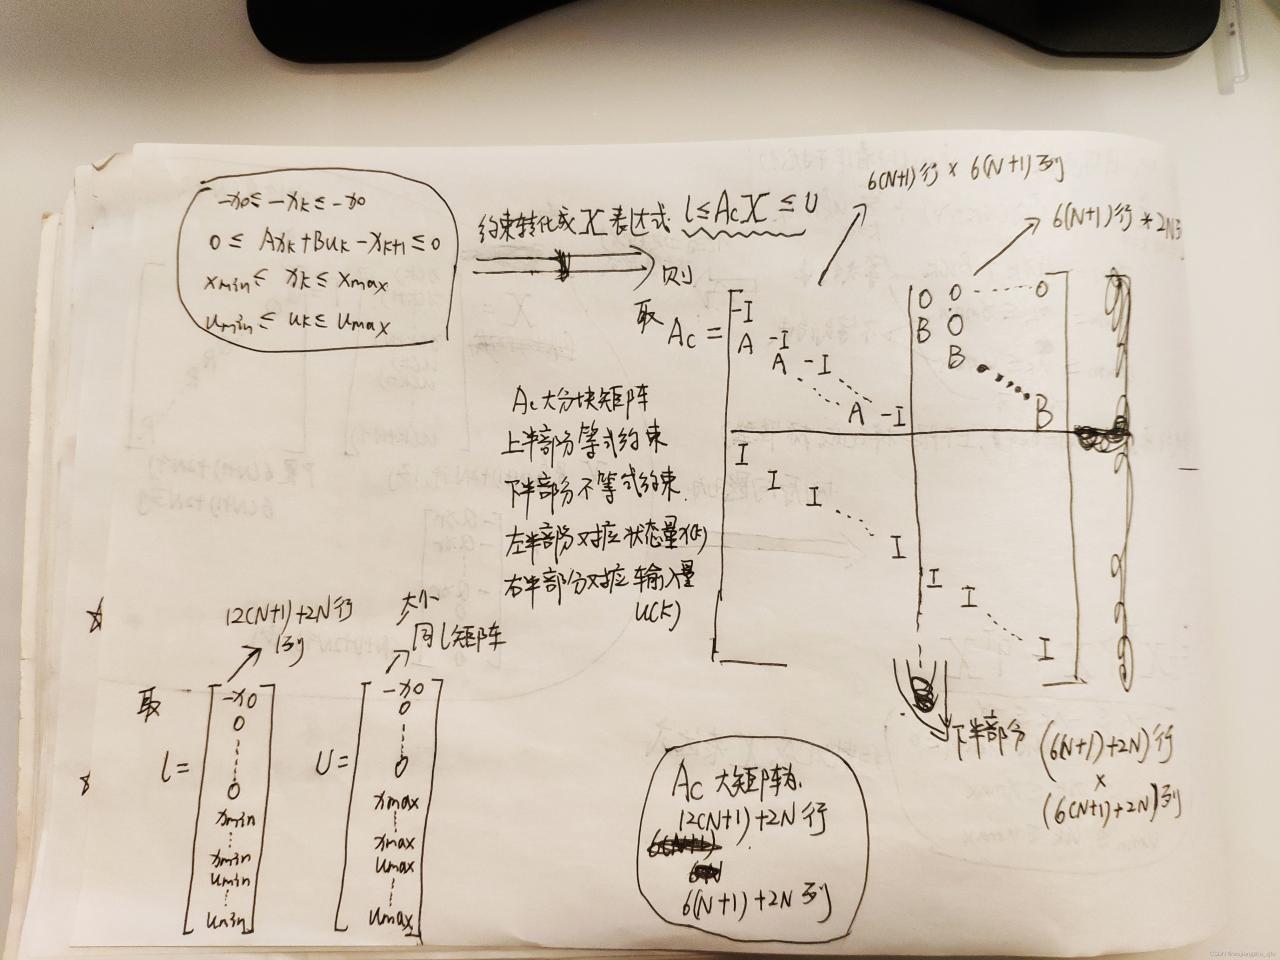 -x0 ≤ -xk ≤ -x0
0 ≤ Axk+Buk-xk+1 ≤ 0
xmin ≤ xk ≤ xmax
umin ≤ uk ≤ umax
约束转化成X表达式: l≤AcX≤U
则
6(N+1)行 × 6(N+1)列
6(N+1)行 * 2N列
取 Ac =
-I 0 0 0
A -I B 0
A -I B
A -I B
I
I
I
I
I
I
I
Ac大分块矩阵
上半部分等式约束
下半部分不等式约束.
左半部分对应状态量x(k)
右半部分对应输入量
u(k)
12(N+1)+2N行
1列
大小
同l矩阵
取
l =
-x0
0
0
xmin
xmin
umin
umin
U =
-x0
0
0
xmax
xmax
umax
umax
下半部分 (6(N+1)+2N)行
×
(6(N+1)+2N)列
Ac 大矩阵为.
12(N+1)+2N行
6(N+1)+2N列